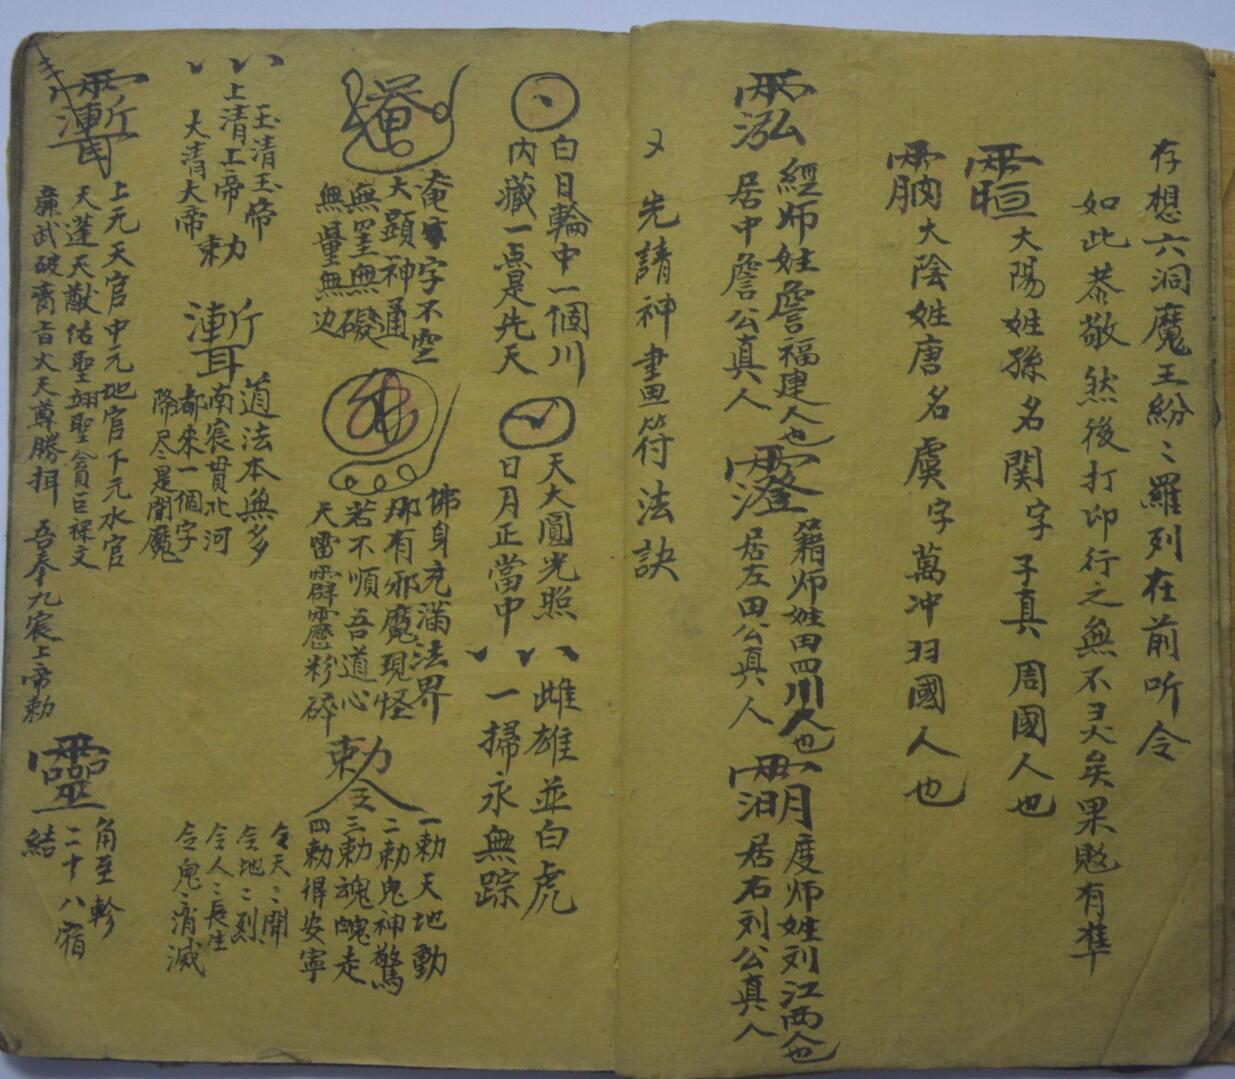 存想六洞魔王紛〻羅列在前听令
如此恭敬然後打印行之無不灵矣果
有准
大陽姓孫名関字子真周國人也
大陰姓唐名虞字萬冲羽國人也
經师姓詹福建人也
居中詹公真人
籍师姓田四川人也
居左田公真人
度师姓刘江西人也
居右刘公真人
又先請神畫符法訣
白日輪中一個川
内藏一点是先天
天大圓光照
日月正當中
雌雄並白虎
一掃永無踪
唵字不空
大顕神通
無罣無礙
無量無边
佛身充滿法界
那有邪魔現怪
若不順吾道心
天雷霹靂粉碎
勅令
一勅天地動
二勅鬼神驚
三勅魂魄走
四勅得安寧
令天〻開
令地〻裂
令人〻長生
令鬼〻消滅
玉清玉帝
上清上帝
大清大帝
勅
道法本無多
南宸貫北河
都來一個字
降尽是閗魔
上元天官中元地官下元水官
天蓬天猷佑聖翊聖貪巨祿文
廉武破
天尊勝揖 吾奉九宸上帝勅
靈
角至軫
二十八宿
結